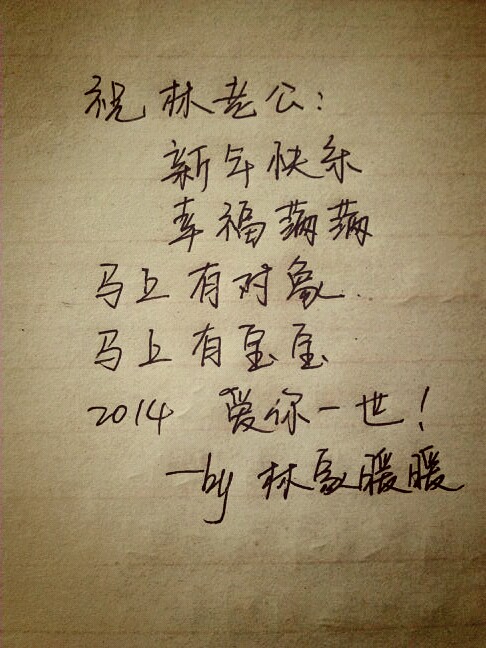 祝林老公：
新年快乐
幸福满满
马上有对象
马上有宝宝
2014 爱你一世！
—by 林家暖暖